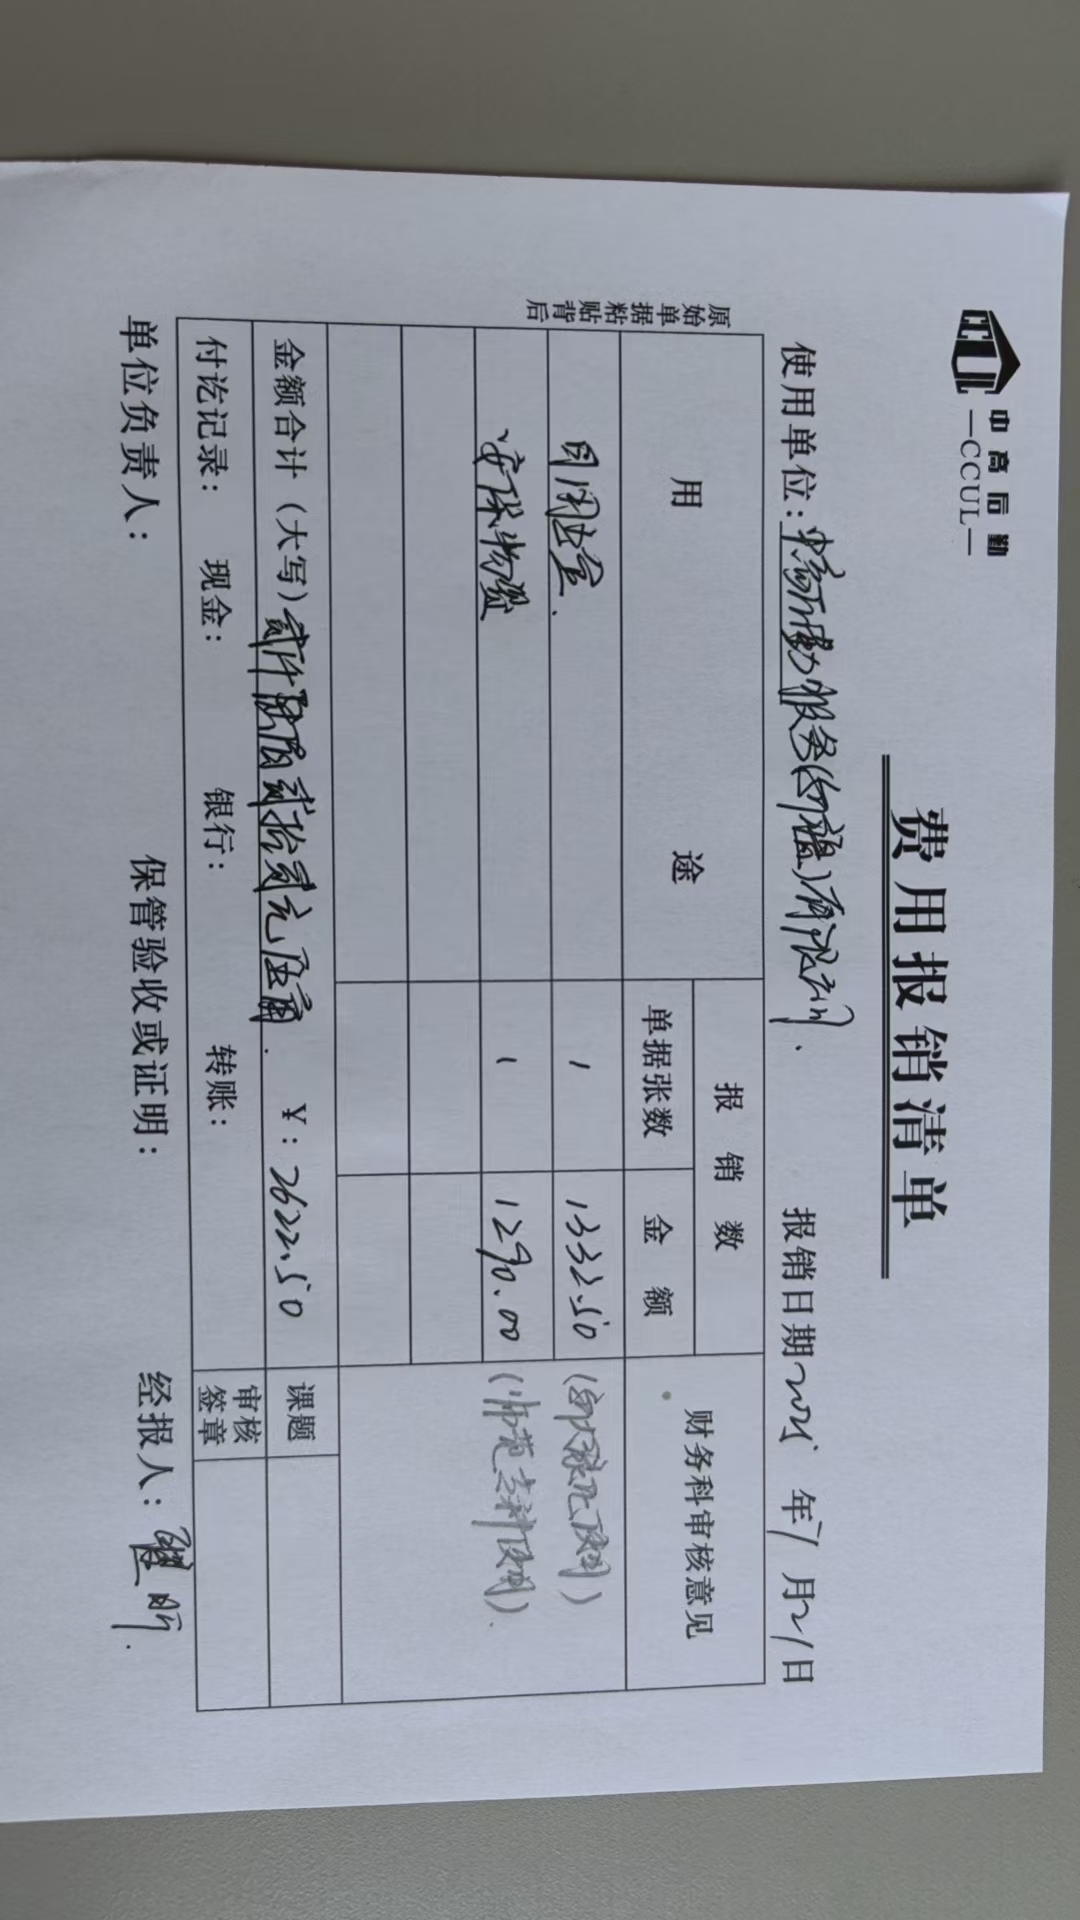 中高后勤
—CCUL—
费用报销清单
使用单位：中高后勤服务有限公司 报销日期2025年7月21日
用途 报销数 财务科审核意见
单据张数 金额
日用 1 1332.50
安保物资 1 1290.00
金额合计（大写）贰仟陆佰贰拾贰元伍角 ¥：2622.50 课题
付讫记录： 现金： 银行： 转账： 审核签章
单位负责人： 保管验收或证明： 经报人：
原始单据粘贴背后